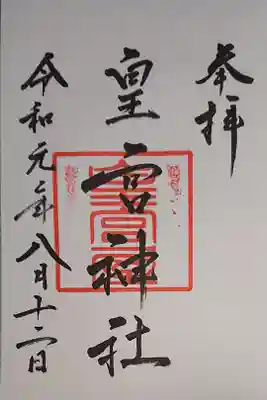 奉拝
皇宮神社
令和元年八月十二日